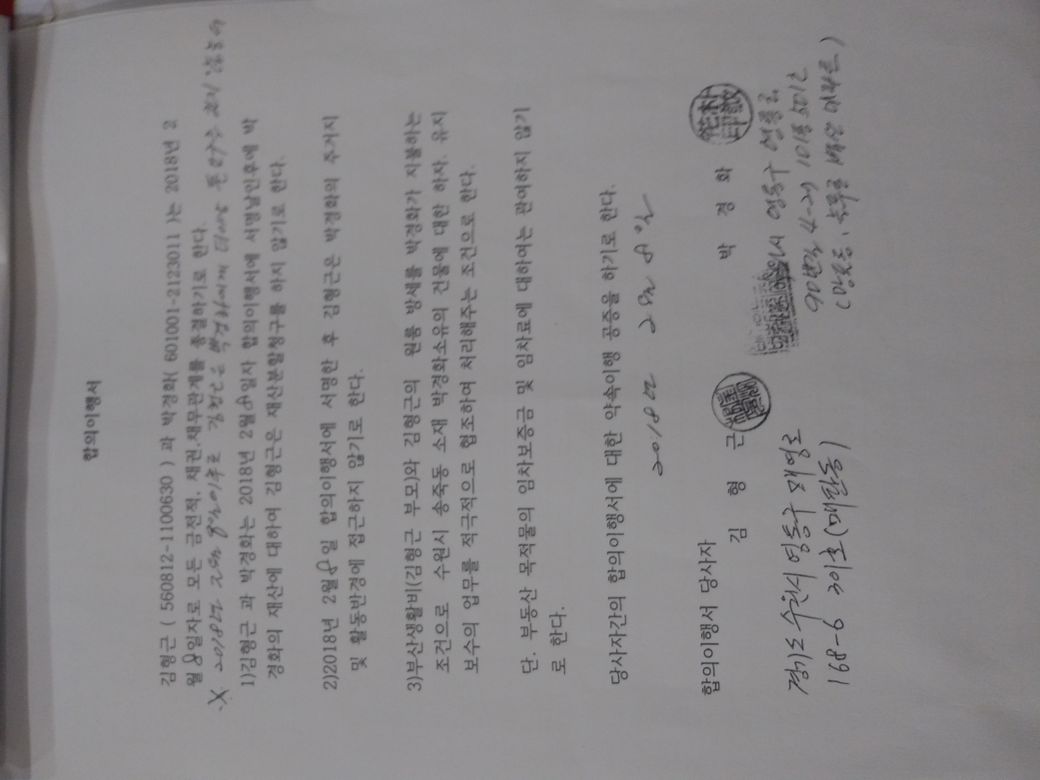 합의이행서
김형근 ( 560812-1100630 ) 과 박경화( 601001-2123011 )는 2018년 2
월 8일자로 모든 금전적, 채권.채무관계를 종결하기로 한다.
※ 2018년 2월 8일이후로
1)김형근 과 박경화는 2018년 2월8일자 합의이행서에 서명날인후에 박
경화의 재산에 대하여 김형근은 재산분할청구를 하지 않기로 한다.
2)2018년 2월8일 합의이행서에 서명한 후 김형근은 박경화의 주거지
및 활동반경에 접근하지 않기로 한다.
3)부산생활비(김형근 부모)와 김형근의 원룸 방세를 박경화가 지불하는
조건으로 수원시 송죽동 소재 박경화소유의 건물에 대한 하자. 유지
보수의 업무를 적극적으로 협조하여 처리해주는 조건으로 한다.
단. 부동산 목적물의 임차보증금 및 임차료에 대하여는 관여하지 않기
로 한다.
당사자간의 합의이행서에 대한 약속이행 공증을 하기로 한다.
2018년 2월 8일
합의이행서 당사자
김 형 근 박 경 화
경기도 수원시 영통구 매영로
168-6 301호 (매탄동)
영통구 영통로
90번길 4-27 101동